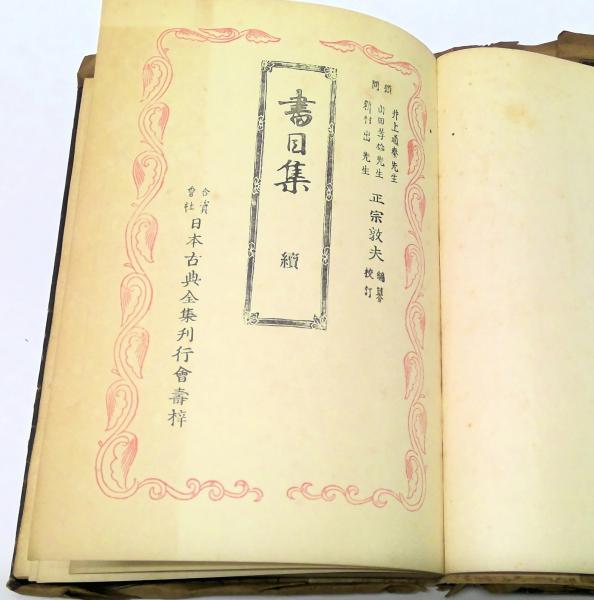 顧問
井上通泰先生
山田孝雄先生
新村出先生
正宗敦夫 編纂校訂
書目集 續
合資會社 日本古典全集刊行會壽梓